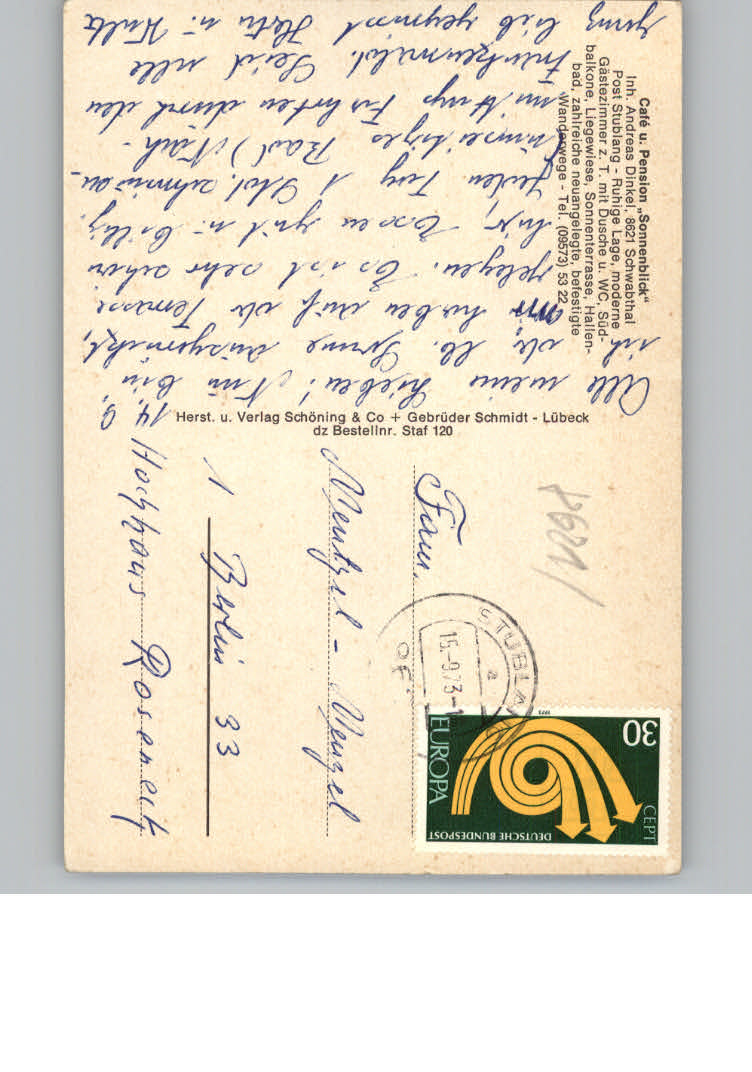 Café u. Pension „Sonnenblick"
Inh. Andreas Dinkel, 8621 Schwabthal
Post Stublang - Ruhige Lage, moderne
Gästezimmer z. T. mit Dusche u. WC, Süd-
balkone, Liegewiese, Sonnenterrasse, Hallen-
bad, zahlreiche neuangelegte, befestigte
Wanderwege - Tel. (09573) 53 22
14. 9.
Alle meine Lieben! Nun bin
ich die lb. Sonne
Wir haben auf der Terrasse
gelegen. Es ist sehr schön
hier, Essen gut u. billig.
Jeden Tag 1 Std. schwimmen
Bad) Nach-
mittags Fahrten durch den
Frankenwald. Seid alle
ganz lieb gegrüsst
Herst. u. Verlag Schöning & Co + Gebrüder Schmidt - Lübeck
dz Bestellnr. Staf 120
8621
STUBLANG
15.-9.73-1
a
DEUTSCHE BUNDESPOST
CEPT
EUROPA
30
1973
Fam.
Mentzel - Menzel
1 Berlin 33
Hochhaus Roseneck